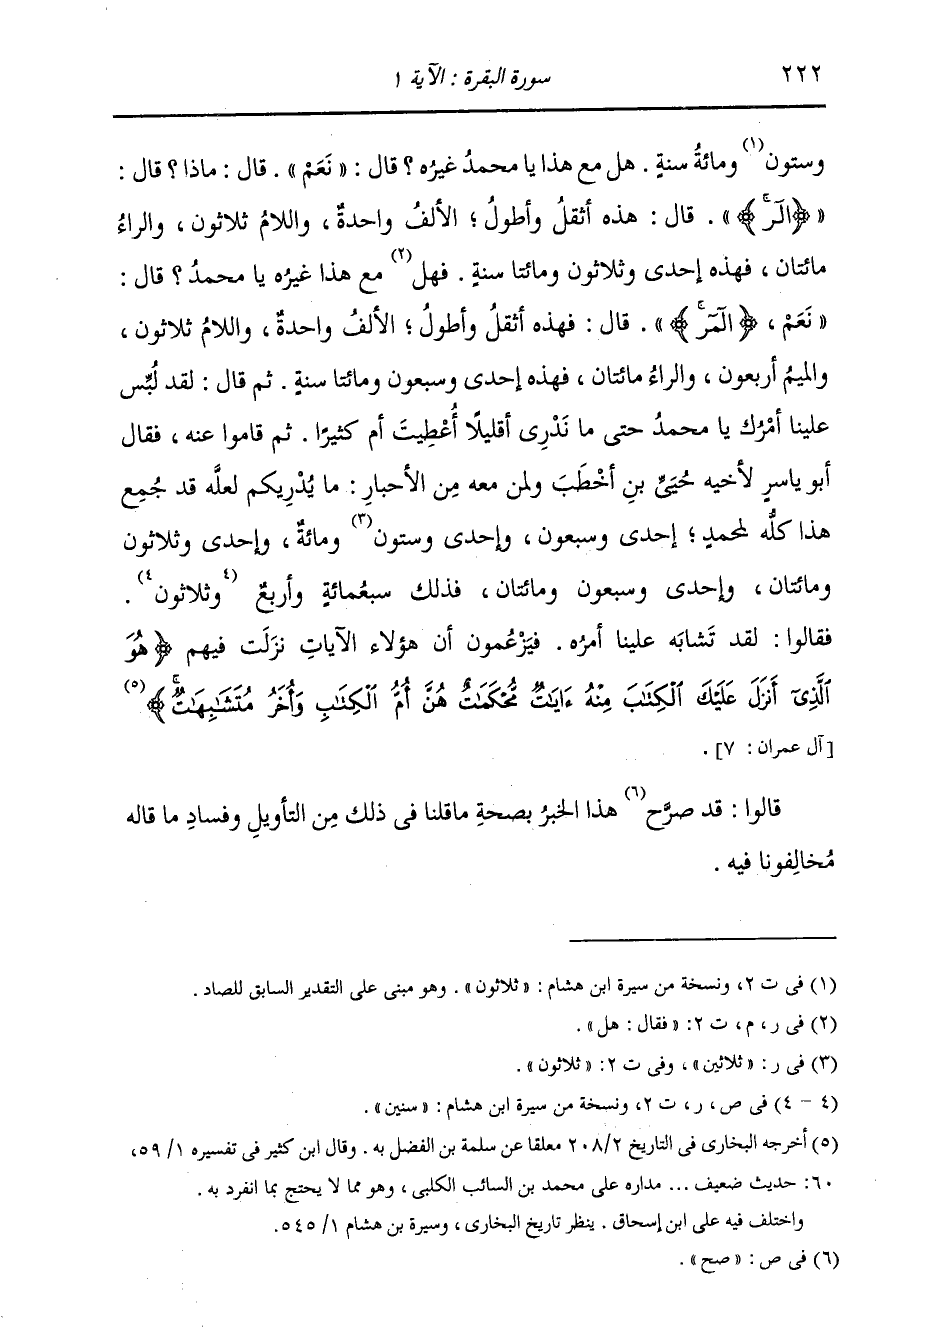 ٢٢٢ سورة البقرة : الآية ١
وستون(١) ومائةُ سنةٍ . هل مع هذا يا محمدُ غيرُه ؟ قال : « نَعَمْ » . قال : ماذا ؟ قال :
« ﴿الٓرۚ﴾ » . قال : هذه أثقلُ وأطولُ ؛ الألفُ واحدةٌ ، واللامُ ثلاثون ، والراءُ
مائتان ، فهذه إحدى وثلاثون ومائتا سنةٍ . فهل(٢) مع هذا غيرُه يا محمدُ ؟ قال :
« نَعَمْ ، ﴿الٓمٓرۚ﴾ » . قال : فهذه أثقلُ وأطولُ ؛ الألفُ واحدةٌ ، واللامُ ثلاثون ،
والميمُ أربعون ، والراءُ مائتان ، فهذه إحدى وسبعون ومائتا سنةٍ . ثم قال : لقد لُبِّس
علينا أمْرُك يا محمدُ حتى ما نَدْرِى أقليلًا أُعْطِيتَ أم كثيرًا . ثم قاموا عنه ، فقال
أبو ياسرٍ لأخيه حُيَىِّ بنِ أخْطَبَ ولمن معه مِن الأحبارِ : ما يُدْرِيكم لعلَّه قد جُمِع
هذا كلُّه لمحمدٍ ؛ إحدى وسبعون ، وإحدى وستون(٣) ومائةٌ ، وإحدى وثلاثون
ومائتان ، وإحدى وسبعون ومائتان ، فذلك سبعُمائةٍ وأربعٌ (٤وثلاثون٤) .
فقالوا : لقد تَشابَه علينا أمرُه . فيَزْعُمون أن هؤلاء الآياتِ نزَلَت فيهم ﴿هُوَ
ٱلَّذِىٓ أَنزَلَ عَلَيْكَ ٱلْكِتَٰبَ مِنْهُ ءَايَٰتٌ مُّحْكَمَٰتٌ هُنَّ أُمُّ ٱلْكِتَٰبِ وَأُخَرُ مُتَشَٰبِهَٰتٌۖ﴾(٥)
[آل عمران : ٧] .
قالوا : قد صرَّح(٦) هذا الخبرُ بصحةِ ماقلنا فى ذلك مِن التأويلِ وفسادِ ما قاله
مُخالِفونا فيه .
(١) فى ت ٢، ونسخة من سيرة ابن هشام : « ثلاثون » . وهو مبنى على التقدير السابق للصاد .
(٢) فى ر ، م ، ت ٢: « فقال : هل » .
(٣) فى ر : « ثلاثين » ، وفى ت ٢: « ثلاثون » .
(٤ - ٤) فى ص ، ر ، ت ٢، ونسخة من سيرة ابن هشام : « سنين » .
(٥) أخرجه البخارى فى التاريخ ٢٠٨/٢ معلقا عن سلمة بن الفضل به . وقال ابن كثير فى تفسيره ١/ ٥٩،
٦٠: حديث ضعيف ... مداره على محمد بن السائب الكلبى ، وهو مما لا يحتج بما انفرد به .
واختلف فيه على ابن إسحاق . ينظر تاريخ البخارى ، وسيرة بن هشام ١/ ٥٤٥.
(٦) فى ص : « صح » .